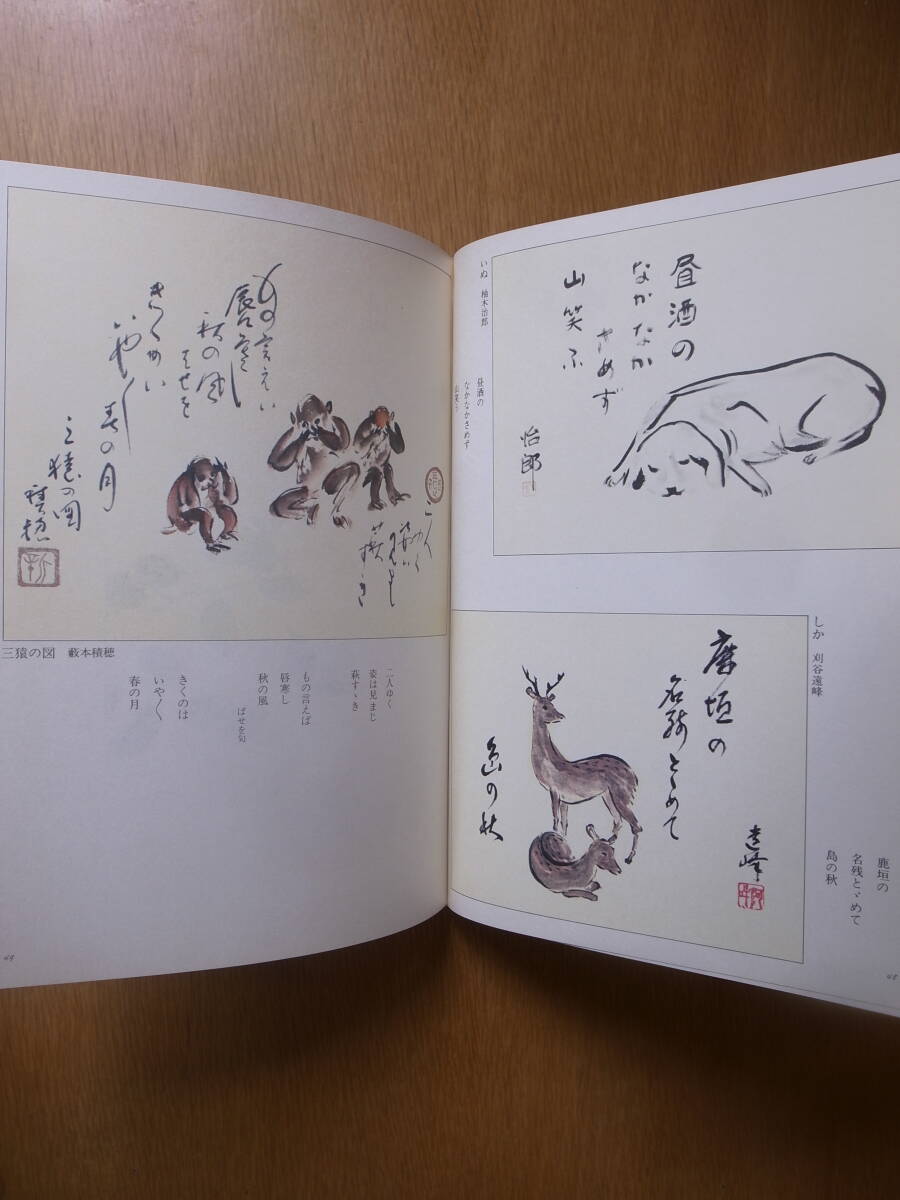 いぬ 柚木治郎
昼酒の
なかなか
さめず
山笑ふ
治郎
昼酒の
なかなかさめず
山笑う
しか 刈谷遠峰
鹿垣の
名残とゞめて
島の秋
遠峰
鹿垣の
名残とゞめて
島の秋
48
もの言えば
唇寒し
秋の風
ばせを
きくのは
いや〱
春の月
三猿の図
積穂
二人ゆく
姿は見まじ
萩すゝき
三猿の図 藪本積穂
二人ゆく
姿は見まじ
萩すゝき
もの言えば
唇寒し
秋の風
ばせを句
きくのは
いや〱
春の月
49